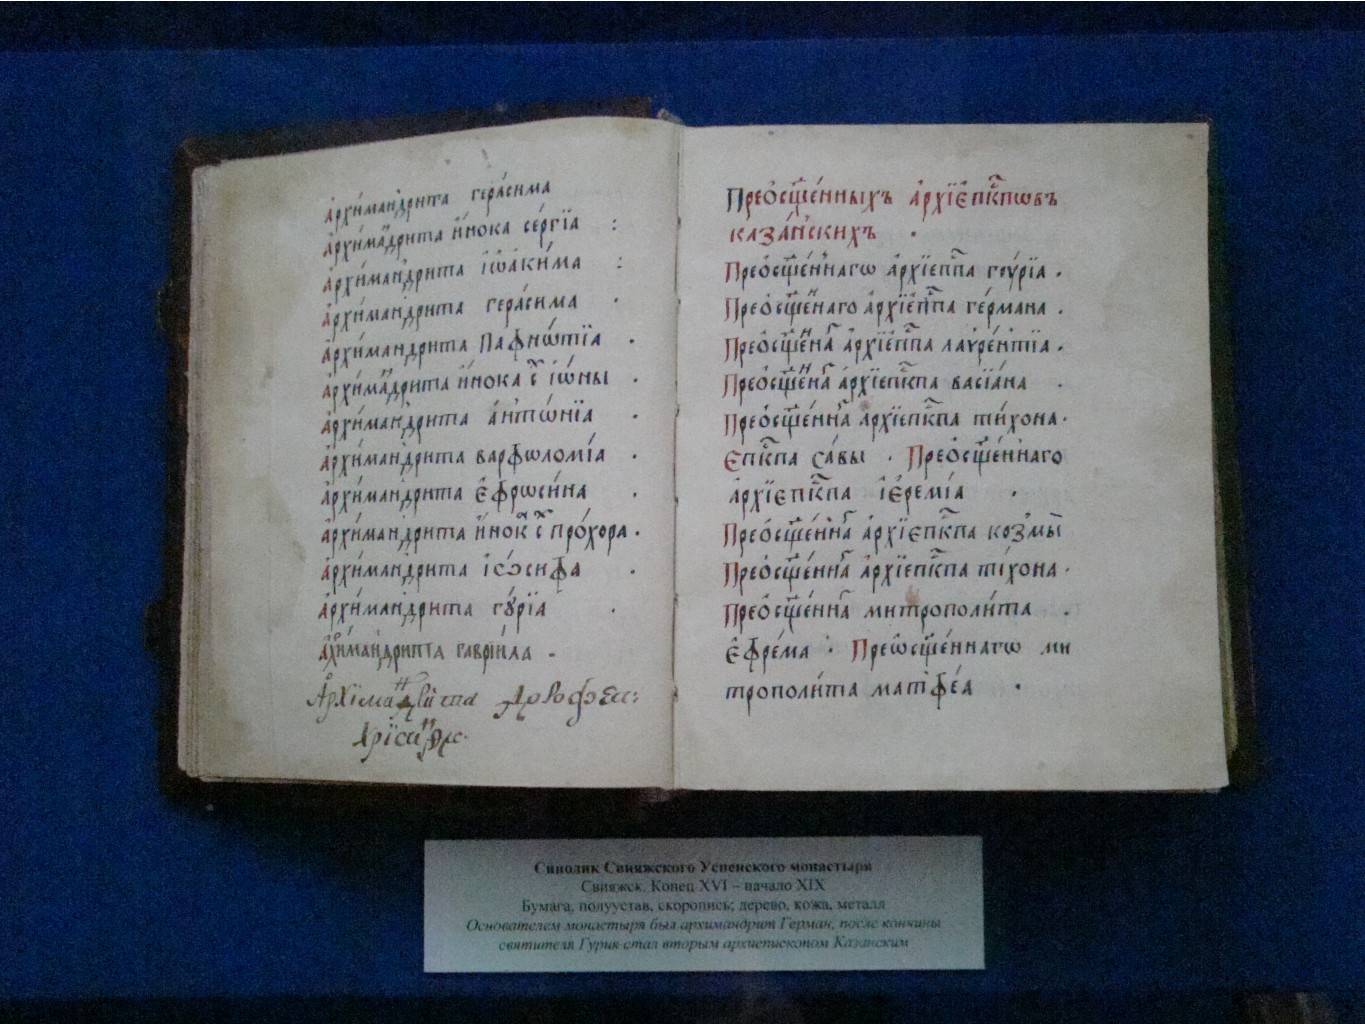 а҆рхїмандрита гера́сима
а҆рхїмандрита и҆́нока се́ргїа :
а҆рхїмандрита і҆ѡаки́ма :
а҆рхїмандрита гера́сима .
а҆рхїмандрита пафнѡ́тїа .
а҆рхїмандрита и҆́нока с҃ і҆ѡ́ны .
а҆рхїмандрита а҆нтѡ́нїа .
а҆рхїмандрита варѳоломі́а .
а҆рхїмандрита є҆фрѡси́на .
а҆рхїмандрита и҆́нока с҃ про́хора .
а҆рхїмандрита і҆ѡ́сифа .
а҆рхїмандрита гꙋ́рїа .
а҆рхїмандрита гаврїи́ла .
Архїмандрита Дорофеа:
Преѡсщ҃е́нныхъ а҆рхїє҆пк҃пѡвъ
каза́нскихъ .
Преѡсщ҃е́ннагѡ а҆рхїєп҃па гꙋ́рїа .
Преѡсщ҃е́ннаго а҆рхїєп҃па ге́рмана .
Преѡсщ҃е́нна҃г а҆рхїєп҃па лаѵре́нтїа .
Преѡсщ҃е́нна҃г а҆рхїєпк҃па васїа́на .
Преѡсщ҃е́нна҃г а҆рхїєпк҃па ти́хона .
Є҆пк҃па са́вы . Преѡсщ҃е́ннаго
а҆рхїєпк҃па і҆єремі́а .
Преѡсщ҃е́нна҃г а҆рхїєпк҃па козмы̀
Преѡсщ҃е́нна҃г а҆рхїєпк҃па ти́хона .
Преѡсщ҃е́нна҃г митрополи́та .
Є҆фре́ма . Преѡсщ҃е́ннагѡ ми
трополи́та матѳе́а .
Синодик Свияжского Успенского монастыря
Свияжск. Конец XVI – начало XIX
Бумага, полуустав, скоропись; дерево, кожа, металл
Основателем монастыря был архимандрит Герман, после кончины
святителя Гурия стал вторым архиепископом Казанским